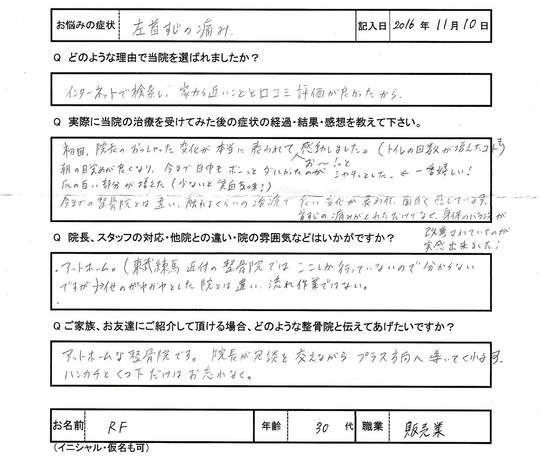 お悩みの症状 左首すじの痛み 記入日 2016年 11月 10日
Q どのような理由で当院を選ばれましたか？
インターネットで検索し、家から近いことと口コミ評価が良かったから。
Q 実際に当院の治療を受けてみた後の症状の経過・結果・感想を教えて下さい。
初回、院長のおっしゃった変化が本当に表われて、感動しました。(トイレの回数が増えたコトも)
お〜！っと
朝の目覚めが良くなり、今まで日中もボーっと がシャキっとした。← 一番嬉しい！
爪の白い部分が増えた(少ないと貧血気味！)
今までの整骨院とは違い、触れるくらいの治療で 変化が表われ、面白く感じています。
首すじの痛みがとれただけでなく、身体のバランスが
改善されていくのが
実感出来ました！
Q 院長、スタッフの対応・他院との違い・院の雰囲気などはいかがですか？
・アットホーム。(東武練馬付近の整骨院ではここしか行っていないので分からない
ですが)他の とした院とは違い、流れ作業ではない。
Q ご家族、お友達にご紹介して頂ける場合、どのような整骨院と伝えてあげたいですか？
アットホームな整骨院です。院長が冗談を交えながらプラス方向へ導いてくれます。
ハンカチとくつ下だけはお忘れなく。
お名前 RF 年齢 30代 職業 販売業
(イニシャル・仮名も可)